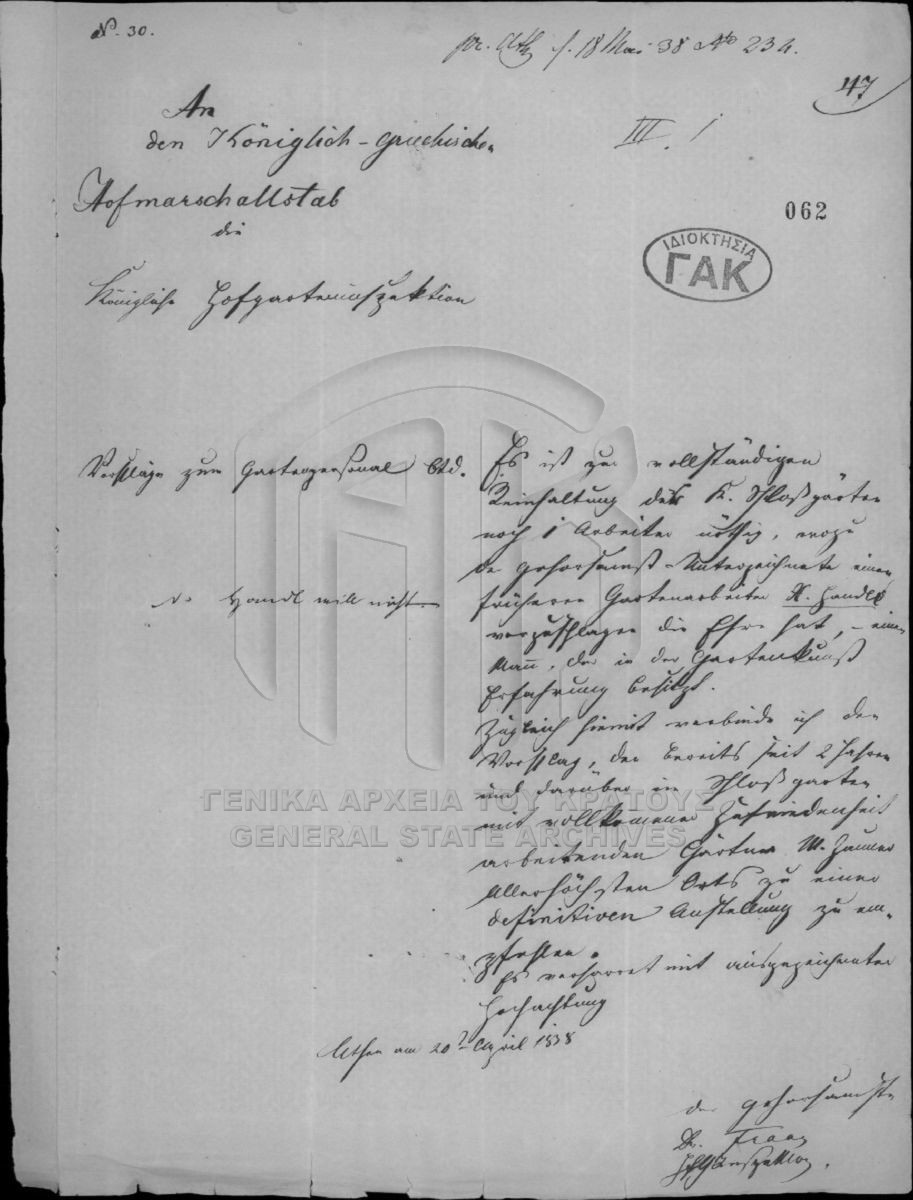 N. 30.
18 Mai 38 No 234.
47
An
den Königlich-griechischen
III. 1
Hofmarschallstab
062
die
ΙΔΙΟΚΤΗΣΙΑ
ΓΑΚ
Königliche Hofgarteninspektion
Vorschläge zum Gartenpersonal btd.
Es ist zur vollständigen
Reinhaltung der K. Schloßgärten
noch 1 Arbeiter nöthig, wozu
der gehorsamst-Unterzeichnete einen
früheren Gartenarbeiter X. Handl
Handl will nicht
vorzuschlagen die Ehre hat, – einen
Mann, der in der Gartenkunst
Erfahrung besitzt.
Zugleich hiemit verbinde ich den
Vorschlag, den bereits seit 2 Jahren
und darüber im Schloßgarten
mit vollkommener Zufriedenheit
arbeitenden Gärtner M.
Allerhöchsten Orts zu einer
definitiven Anstellung zu em-
pfehlen.
Es verharret mit ausgezeichneter
Hochachtung
Athen am 20t April 1838
der gehorsamste
Dr. Fraas
ΓΕΝΙΚΑ ΑΡΧΕΙΑ ΤΟΥ ΚΡΑΤΟΥΣ
GENERAL STATE ARCHIVES